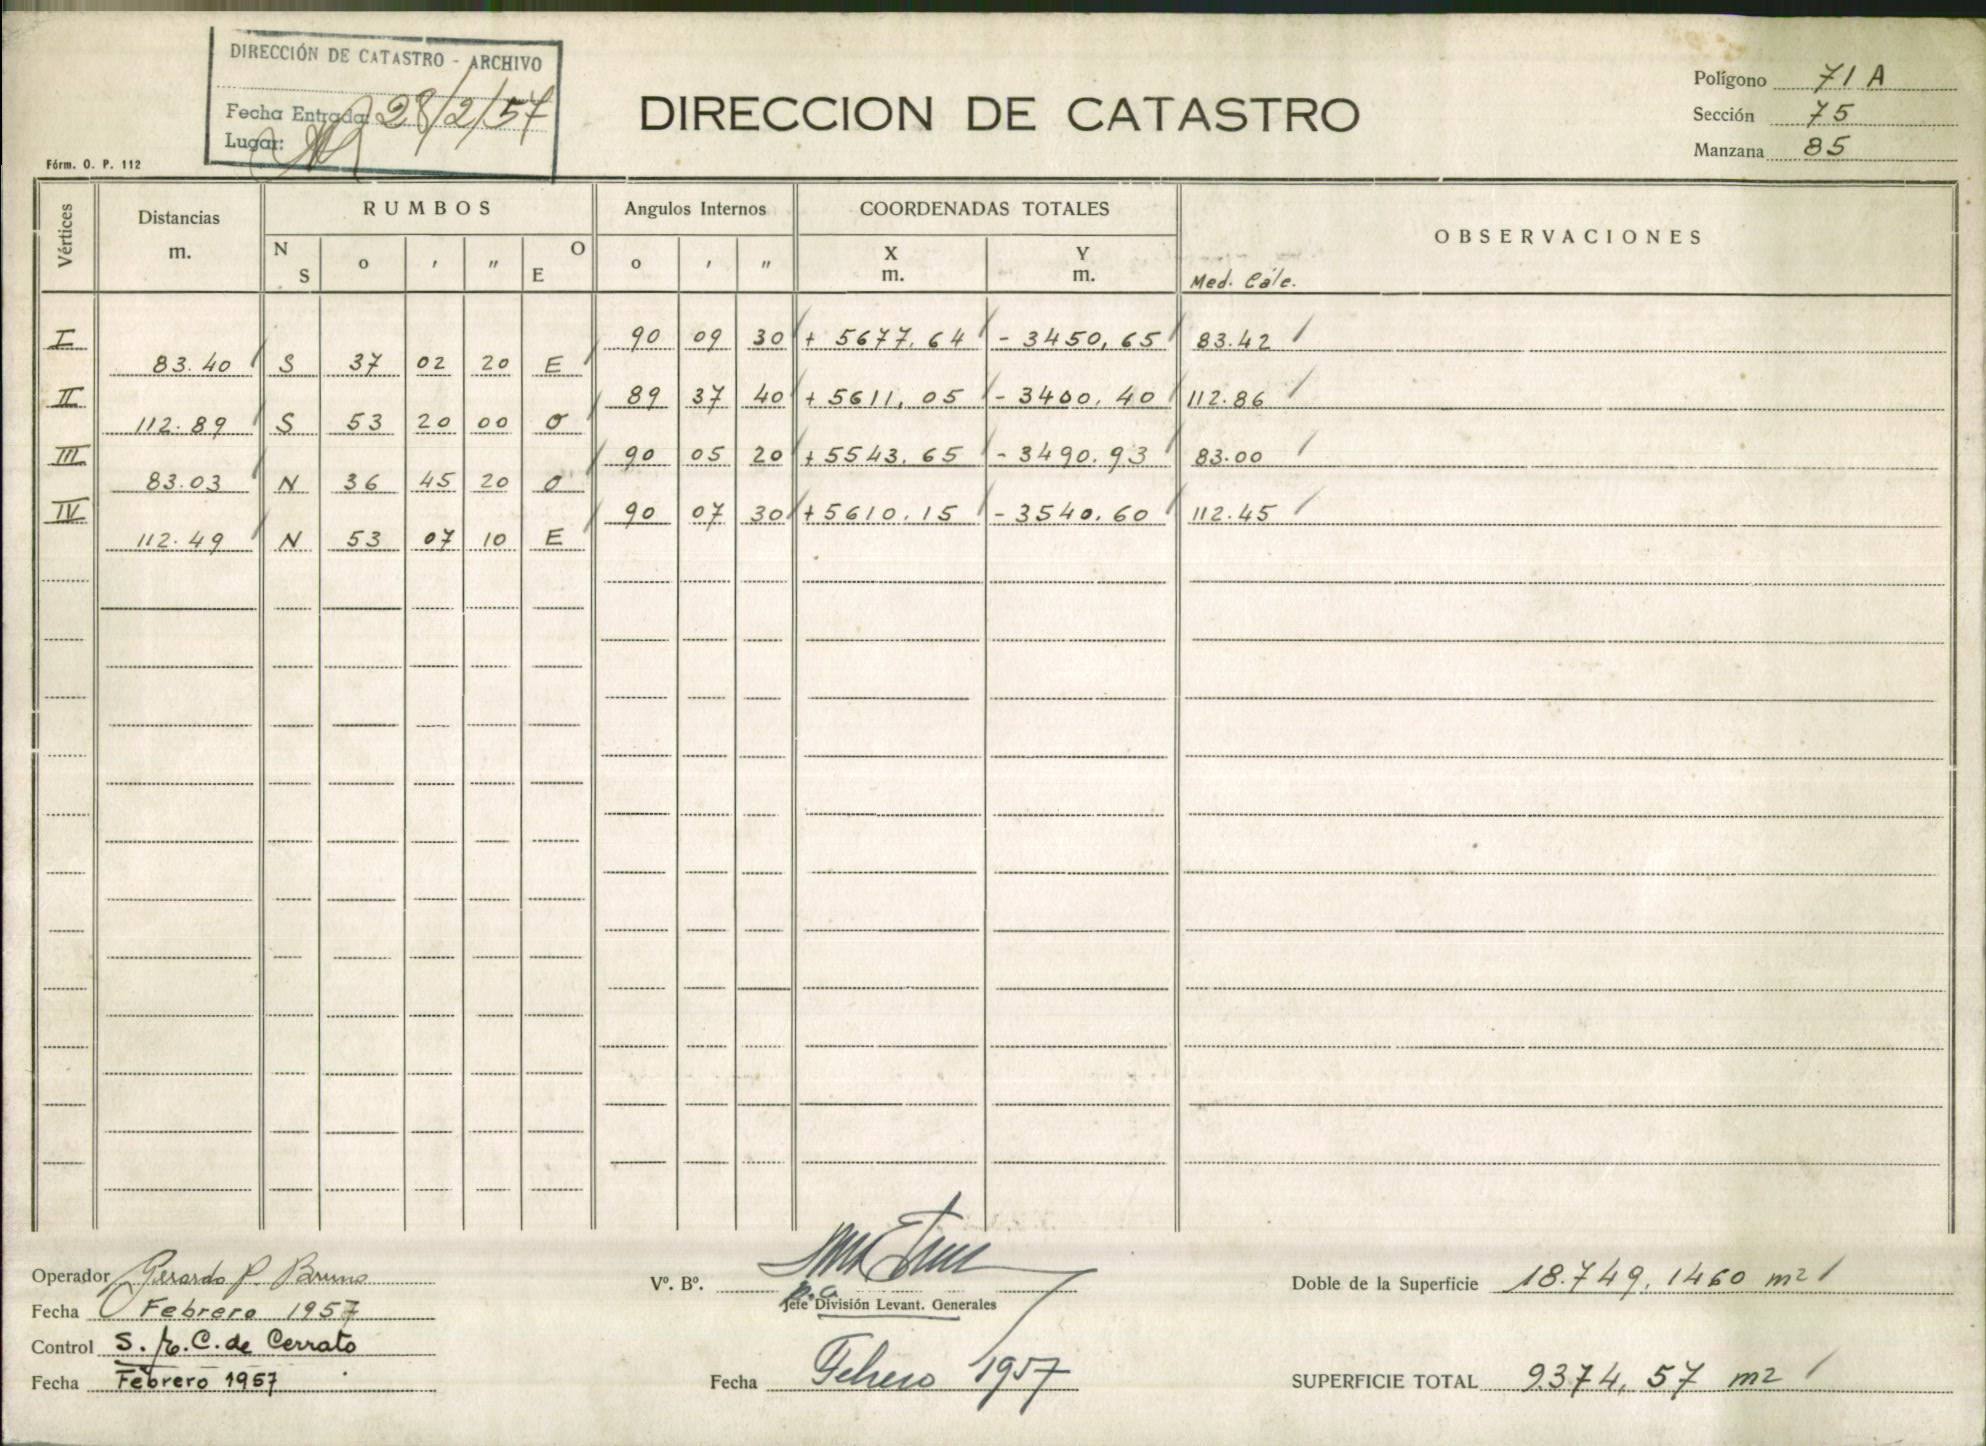 DIRECCIÓN DE CATASTRO - ARCHIVO
Fecha Entrada 28/2/57
Lugar:
Fórm. O. P. 112
DIRECCION DE CATASTRO
Polígono 71 A
Sección 75
Manzana 85
Vértices Distancias m. RUMBOS Angulos Internos COORDENADAS TOTALES OBSERVACIONES
N S o ' " O E o ' " X m. Y m. Med. Calc.
I 90 09 30 + 5677.64 - 3450,65 83.42
83.40 S 37 02 20 E
II 89 37 40 + 5611,05 - 3400.40 112.86
112.89 S 53 20 00 O
III 90 05 20 + 5543.65 - 3490.93 83.00
83.03 N 36 45 20 O
IV 90 07 30 + 5610.15 - 3540.60 112.45
112.49 N 53 07 10 E
Operador Gerardo P. Bruno
Fecha Febrero 1957
Control S. C. de Cerrato
Fecha Febrero 1957
Vº. Bº.
p.a
Jefe División Levant. Generales
Fecha Febrero 1957
Doble de la Superficie 18.749,1460 m2
SUPERFICIE TOTAL 9.374,57 m2